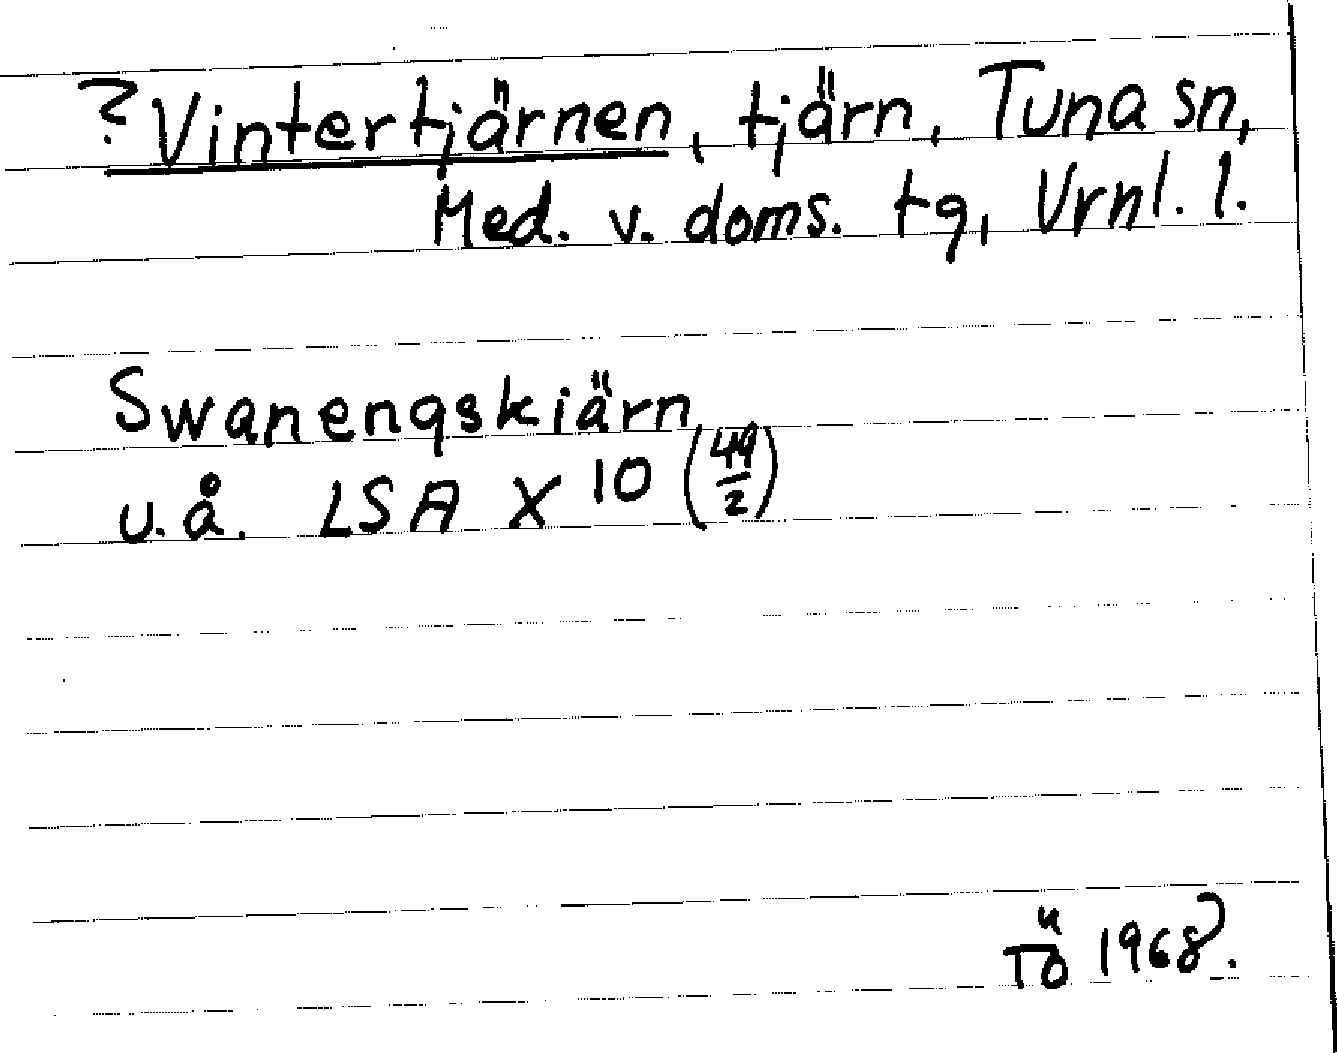 ? Vintertjärnen, tjärn, Tuna sn,
Med. v. doms. tg, Vrnl. l.
Swanengskiärn
u.å. LSA X 10 (49/2)
TÖ 1968.